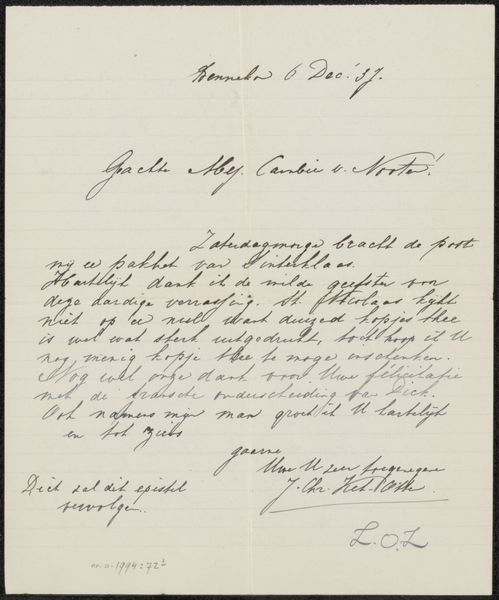 Bennekom 6 Dec. '37.
Geachte Mej. Cambier v. Nooten!
Zaterdagmorge bracht de post
mij ee pakket van Sinterklaas.
Hartelijk dank ik de milde geefster voor
deze aardige verrassing. St. Nicolaas kijkt
niet op ee nul want duizend kopjes thee
is wel wat sterk uitgedrukt, toch hoop ik U
nog menig kopje thee te moge inschenken.
Nog wel onze dank voor Uwe félicitatie
met de fransche onderscheiding va Dick.
Ook namens mijn man groet ik U hartelijk
en tot ziens
gaarne
Uwe U zeer toegenegene
J. Chr. Ket
Dick zal dit epistel
vervolgen.
Z.O.Z
1994:72